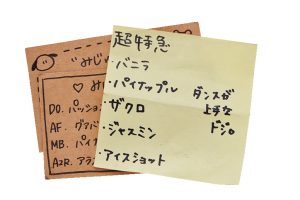 "みじゅ
♡ み
DO. パッショ
AF. グァバ
MB. パイナ
AZR. アラ
超特急
・バニラ
・パイナップル
・ザクロ
・ジャスミン
・アイスショット
ダンスが
上手な
ドジ。